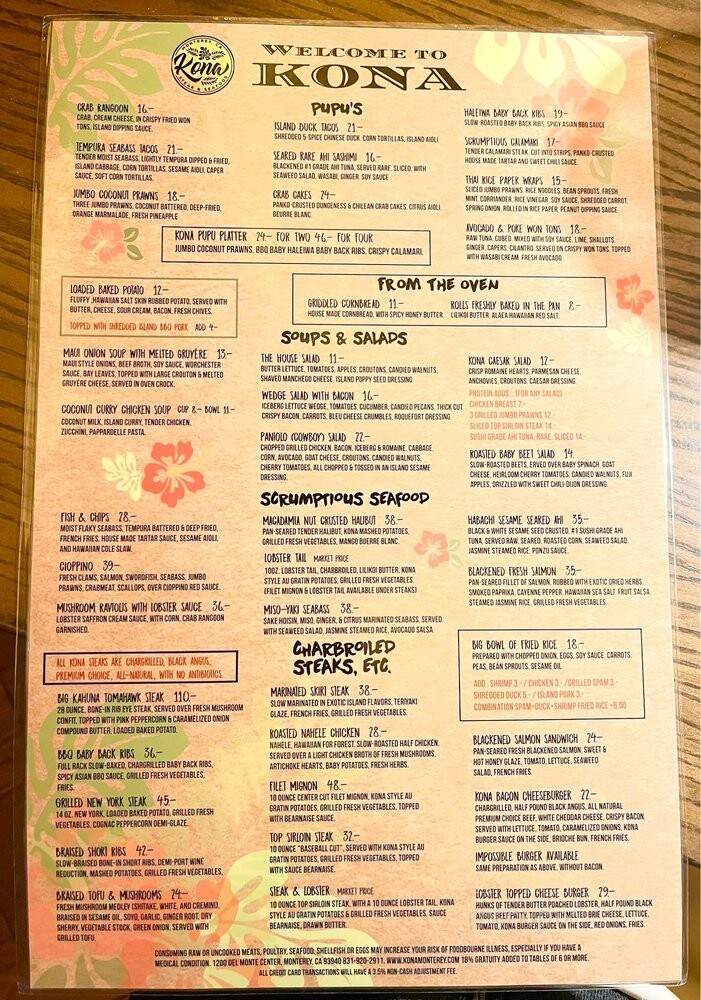 MONTEREY, CA
Kona
STEAK & SEAFOOD
WELCOME TO
KONA
PUPU'S
CRAB RANGOON 16.-
CRAB, CREAM CHEESE, IN CRISPY FRIED WON
TONS, ISLAND DIPPING SAUCE.
TEMPURA SEABASS TACOS 21-
TENDER MOIST SEABASS, LIGHTLY TEMPURA DIPPED & FRIED,
ISLAND CABBAGE, CORN TORTILLAS, SESAME AIOLI, CAPER
SAUCE, SOFT CORN TORTILLAS.
JUMBO COCONUT PRAWNS 18.-
THREE JUMBO PRAWNS, COCONUT BATTERED, DEEP-FRIED,
ORANGE MARMALADE, FRESH PINEAPPLE
ISLAND DUCK TACOS 21-
SHREDDED 5-SPICE CHINESE DUCK, CORN TORTILLAS, ISLAND AIOLI
SEARED RARE AHI SASHIMI 16.-
BLACKENED #1 GRADE AHI TUNA, SERVED RARE, SLICED, WITH
SEAWEED SALAD, WASABI, GINGER, SOY SAUCE
CRAB CAKES 24-
PANKO CRUSTED DUNGENESS & CHILEAN CRAB CAKES, CITRUS AIOLI
BEURRE BLANC.
HALEIWA BABY BACK RIBS 19-
SLOW-ROASTED BABY BACK RIBS, SPICY ASIAN BBQ SAUCE
SCRUMPTIOUS CALAMARI 17-
TENDER CALAMARI STEAK, CUT INTO STRIPS, PANKO-CRUSTED
HOUSE MADE TARTAR AND SWEET CHILI SAUCE.
THAI RICE PAPER WRAPS 15-
SLICED JUMBO PRAWNS, RICE NOODLES, BEAN SPROUTS, FRESH
MINT, CORRIANDER, RICE VINEGAR, SOY SAUCE, SHREDDED CARROT,
SPRING ONION, ROLLED IN RICE PAPER, PEANUT DIPPING SAUCE.
AVOCADO & POKE WON TONS 18.-
RAW TUNA, CUBED, MIXED WITH SOY SAUCE, LIME, SHALLOTS,
GINGER, CAPERS, CILANTRO. SERVED ON CRISPY WON TONS, TOPPED
WITH WASABI CREAM, FRESH AVOCADO
KONA PUPU PLATTER 24- FOR TWO 46.- FOR FOUR
JUMBO COCONUT PRAWNS, BBQ BABY HALEIWA BABY BACK RIBS, CRISPY CALAMARI.
LOADED BAKED POTATO 12-
FLUFFY, HAWAIIAN SALT SKIN RUBBED POTATO, SERVED WITH
BUTTER, CHEESE, SOUR CREAM, BACON, FRESH CHIVES.
TOPPED WITH SHREDDED ISLAND BBQ PORK ADD 4-
FROM THE OVEN
GRIDDLED CORNBREAD 11.-
HOUSE MADE CORNBREAD, WITH SPICY HONEY BUTTER
ROLLS FRESHLY BAKED IN THE PAN 8.-
LILIKOI BUTTER, ALAEA HAWAIIAN RED SALT.
SOUPS & SALADS
MAUI ONION SOUP WITH MELTED GRUYÉRE 13.-
MAUI STYLE ONIONS, BEEF BROTH, SOY SAUCE, WORCHESTER
SAUCE, BAY LEAVES, TOPPED WITH LARGE CROUTON & MELTED
GRUYÉRE CHEESE, SERVED IN OVEN CROCK.
COCONUT CURRY CHICKEN SOUP CUP 8.- BOWL 11.-
COCONUT MILK, ISLAND CURRY, TENDER CHICKEN,
ZUCCHINI, PAPPARDELLE PASTA.
THE HOUSE SALAD 11.-
BUTTER LETTUCE, TOMATOES, APPLES, CROUTONS, CANDIED WALNUTS,
SHAVED MANCHEGO CHEESE, ISLAND POPPY SEED DRESSING
WEDGE SALAD WITH BACON 16.-
ICEBERG LETTUCE WEDGE, TOMATOES, CUCUMBER, CANDIED PECANS, THICK CUT
CRISPY BACON, CARROTS, BLEU CHEESE CRUMBLES, ROQUEFORT DRESSING
PANIOLO (COWBOY) SALAD 22.-
CHOPPED GRILLED CHICKEN, BACON, ICEBERG & ROMAINE, CABBAGE,
CORN, AVOCADO, GOAT CHEESE, CROUTONS, CANDIED WALNUTS,
CHERRY TOMATOES, ALL CHOPPED & TOSSED IN AN ISLAND SESAME
DRESSING.
KONA CAESAR SALAD 12.-
CRISP ROMAINE HEARTS, PARMESAN CHEESE,
ANCHOVIES, CROUTONS, CAESAR DRESSING
PROTEIN ADDS... (FOR ANY SALAD)
CHICKEN BREAST 7.-
3 GRILLED JUMBO PRAWNS 12.-
SLICED TOP SIRLOIN STEAK 14.-
SUSHI GRADE AHI TUNA, RARE, SLICED 14.-
ROASTED BABY BEET SALAD 14
SLOW-ROASTED BEETS, ERVED OVER BABY SPINACH, GOAT
CHEESE, HEIRLOOM CHERRY TOMATOES, CANDIED WALNUTS, FUJI
APPLES, DRIZZLED WITH SWEET CHILI-DIJON DRESSING.
SCRUMPTIOUS SEAFOOD
FISH & CHIPS 28.-
MOIST FLAKY SEABASS, TEMPURA BATTERED & DEEP FRIED,
FRENCH FRIES, HOUSE MADE TARTAR SAUCE, SESAME AIOLI,
AND HAWAIIAN COLE SLAW.
CIOPPINO 39.-
FRESH CLAMS, SALMON, SWORDFISH, SEABASS, JUMBO
PRAWNS, CRABMEAT, SCALLOPS, OVER CIOPPINO RED SAUCE.
MUSHROOM RAVIOLIS WITH LOBSTER SAUCE 36.-
LOBSTER SAFFRON CREAM SAUCE, WITH CORN, CRAB RANGOON
GARNISHED.
MACADAMIA NUT CRUSTED HALIBUT 38.-
PAN-SEARED TENDER HALIBUT, KONA MASHED POTATOES,
GRILLED FRESH VEGETABLES, MANGO BUERRE BLANC.
LOBSTER TAIL MARKET PRICE
10OZ. LOBSTER TAIL, CHARBROILED, LILIKOI BUTTER, KONA
STYLE AU GRATIN POTATOES, GRILLED FRESH VEGETABLES.
(FILET MIGNON & LOBSTER TAIL AVAILABLE UNDER STEAKS)
MISO-YAKI SEABASS 38.-
SAKE HOISIN, MISO, GINGER, & CITRUS MARINATED SEABASS, SERVED
WITH SEAWEED SALAD, JASMINE STEAMED RICE, AVOCADO SALSA
HABACHI SESAME SEARED AHI 35.-
BLACK & WHITE SESAME SEED CRUSTED, #1 SUSHI GRADE AHI
TUNA, SERVED RAW, SEARED, ROASTED CORN, SEAWEED SALAD,
JASMINE STEAMED RICE, PONZU SAUCE.
BLACKENED FRESH SALMON 35-
PAN-SEARED FILLET OF SALMON, RUBBED WITH EXOTIC DRIED HERBS,
SMOKED PAPRIKA, CAYENNE PEPPER, HAWAIIAN SEA SALT, FRUIT SALSA,
STEAMED JASMINE RICE, GRILLED FRESH VEGETABLES.
BIG BOWL OF FRIED RICE 18.-
PREPARED WITH CHOPPED ONION, EGGS, SOY SAUCE, CARROTS,
PEAS, BEAN SPROUTS, SESAME OIL.
ADD: SHRIMP 3.- / CHICKEN 3.- / GRILLED SPAM 3.-
SHREDDED DUCK 5.- / ISLAND PORK 3.-
COMBINATION SPAM+DUCK+SHRIMP FRIED RICE +6.00
CHARBROILED
STEAKS, ETC.
ALL KONA STEAKS ARE CHARGRILLED, BLACK ANGUS,
PREMIUM CHOICE, ALL-NATURAL, WITH NO ANTIBIOTICS.
BIG KAHUNA TOMAHAWK STEAK 110.-
28 OUNCE, BONE-IN RIB EYE STEAK, SERVED OVER FRESH MUSHROOM
CONFIT, TOPPED WITH PINK PEPPERCORN & CARAMELIZED ONION
COMPOUND BUTTER, LOADED BAKED POTATO.
BBQ BABY BACK RIBS 36.-
FULL RACK SLOW-BAKED, CHARGRILLED BABY BACK RIBS,
SPICY ASIAN BBQ SAUCE, GRILLED FRESH VEGETABLES,
FRIES.
GRILLED NEW YORK STEAK 45.-
14 OZ. NEW YORK, LOADED BAKED POTATO, GRILLED FRESH
VEGETABLES, COGNAC PEPPERCORN DEMI-GLAZE.
BRAISED SHORT RIBS 42.-
SLOW-BRAISED BONE-IN SHORT RIBS, DEMI-PORT WINE
REDUCTION, MASHED POTATOES, GRILLED FRESH VEGETABLES.
BRAISED TOFU & MUSHROOMS 24.-
FRESH MUSHROOM MEDLEY (SHITAKE, WHITE, AND CREMINO,
BRAISED IN SESAME OIL, SOYO, GARLIC, GINGER ROOT, DRY
SHERRY, VEGETABLE STOCK, GREEN ONION, SERVED WITH
GRILLED TOFU.
MARINATED SKIRT STEAK 38.-
SLOW MARINATED IN EXOTIC ISLAND FLAVORS, TERIYAKI
GLAZE, FRENCH FRIES, GRILLED FRESH VEGETABLES.
ROASTED NAHELE CHICKEN 28.-
NAHELE, HAWAIIAN FOR FOREST. SLOW-ROASTED HALF CHICKEN,
SERVED OVER A LIGHT CHICKEN BROTH OF FRESH MUSHROOMS,
ARTICHOKE HEARTS, BABY POTATOES, FRESH HERBS.
FILET MIGNON 48.-
10 OUNCE CENTER CUT FILET MIGNON, KONA STYLE AU
GRATIN POTATOES, GRILLED FRESH VEGETABLES, TOPPED
WITH BEARNAISE SAUCE.
TOP SIRLOIN STEAK 32.-
10 OUNCE "BASEBALL CUT", SERVED WITH KONA STYLE AU
GRATIN POTATOES, GRILLED FRESH VEGETABLES, TOPPED
WITH SAUCE BEARNAISE.
STEAK & LOBSTER MARKET PRICE
10 OUNCE TOP SIRLOIN STEAK, WITH A 10 OUNCE LOBSTER TAIL, KONA
STYLE AU GRATIN POTATOES & GRILLED FRESH VEGETABLES. SAUCE
BEARNAISE, DRAWN BUTTER.
BLACKENED SALMON SANDWICH 24-
PAN-SEARED FRESH BLACKENED SALMON, SWEET &
HOT HONEY GLAZE, TOMATO, LETTUCE, SEAWEED
SALAD, FRENCH FRIES.
KONA BACON CHEESEBURGER 22-
CHARGRILLED, HALF POUND BLACK ANGUS, ALL NATURAL
PREMIUM CHOICE BEEF, WHITE CHEDDAR CHEESE, CRISPY BACON,
SERVED WITH LETTUCE, TOMATO, CARAMELIZED ONIONS, KONA
BURGER SAUCE ON THE SIDE, BRIOCHE BUN, FRENCH FRIES.
IMPOSSIBLE BURGER AVAILABLE
SAME PREPARATION AS ABOVE, WITHOUT BACON
LOBSTER TOPPED CHEESE BURGER 29.-
HUNKS OF TENDER BUTTER POACHED LOBSTER, HALF POUND BLACK
ANGUS BEEF PATTY, TOPPED WITH MELTED BRIE CHEESE, LETTUCE,
TOMATO, KONA BURGER SAUCE ON THE SIDE, RED ONIONS, FRIES.
CONSUMING RAW OR UNCOOKED MEATS, POULTRY, SEAFOOD, SHELLFISH OR EGGS MAY INCREASE YOUR RISK OF FOODBOURNE ILLNESS, ESPECIALLY IF YOU HAVE A
MEDICAL CONDITION. 1200 DEL MONTE CENTER, MONTEREY, CA 93940 831-920-2911. WWW.KONAMONTEREY.COM 18% GRATUITY ADDED TO TABLES OF 6 OR MORE.
ALL CREDIT CARD TRANSACTIONS WILL HAVE A 3.5% NON-CASH ADJUSTMENT FEE.